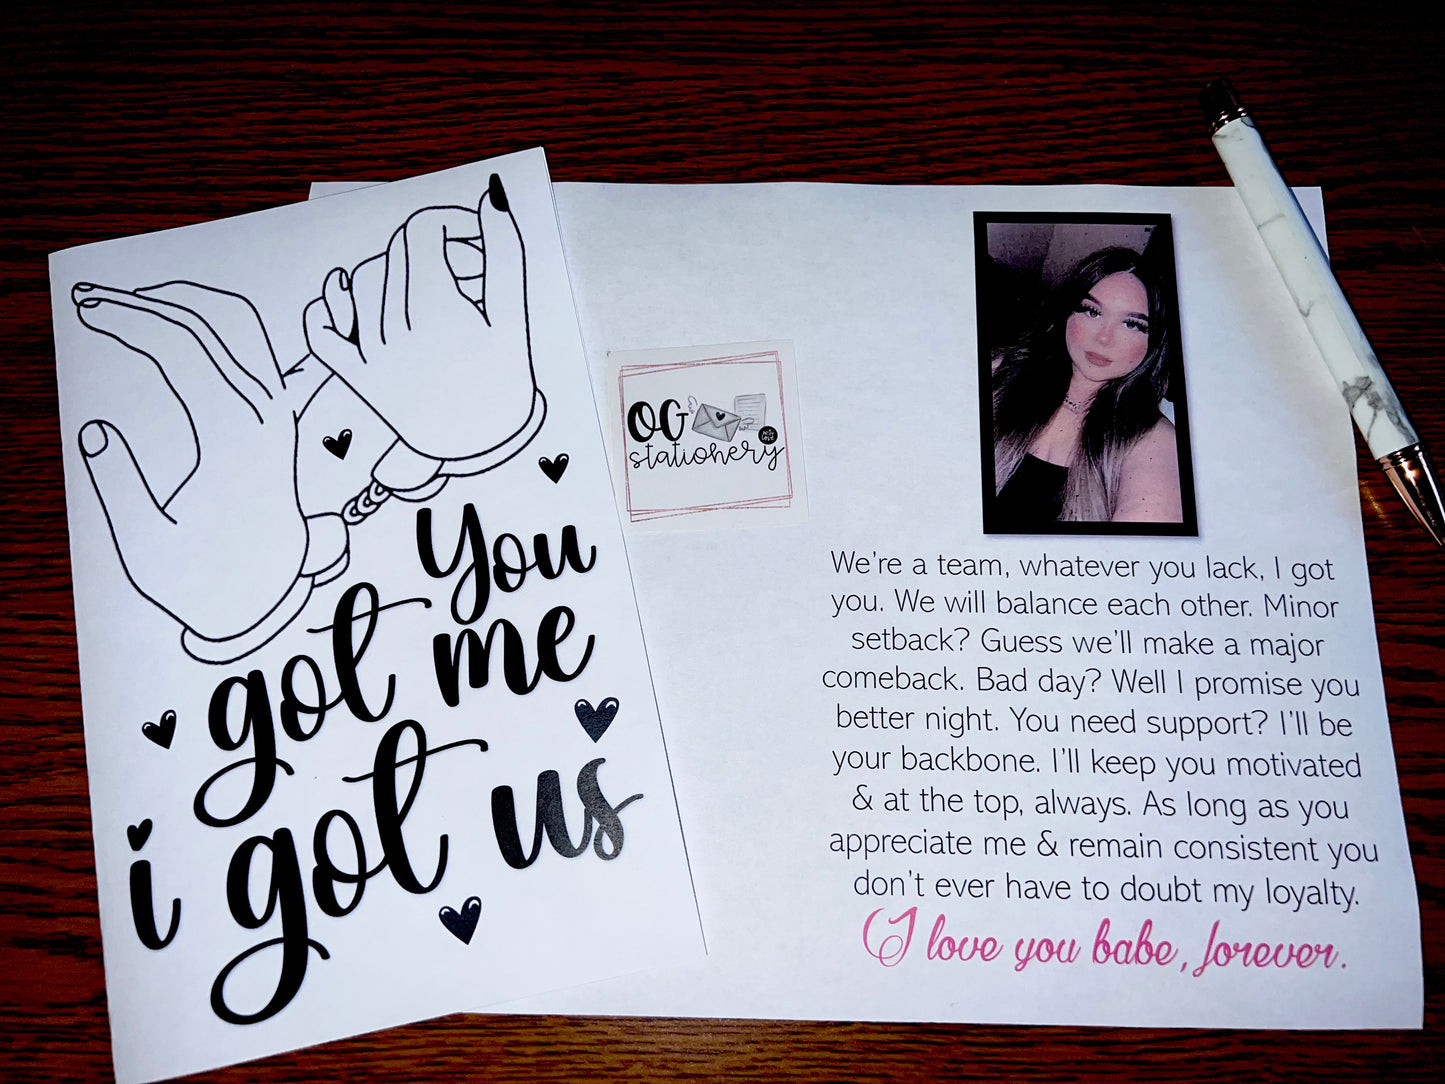 You
got me
i got us
OG
stationery
with
love
We're a team, whatever you lack, I got
you. We will balance each other. Minor
setback? Guess we'll make a major
comeback. Bad day? Well I promise you
better night. You need support? I'll be
your backbone. I'll keep you motivated
& at the top, always. As long as you
appreciate me & remain consistent you
don't ever have to doubt my loyalty.
I love you babe, forever.